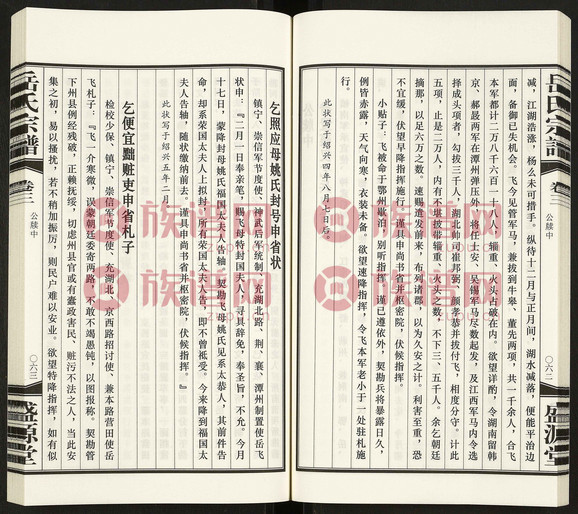 岳氏宗谱
卷三
公牍中
〇六二
盛源堂
减，江湖浩涨，杨么未可措手。纵待十二月与正月间，湖水减落，便能平治边
面，备御已失机会。飞今见管军马，兼拨到牛皋、董先两项，共一千余人，合飞
本军都计二万八千六百一十八人，辎重、火头占破在内。欲望详酌，令湖南留韩
京、郝晸两军在潭州弹压外，将任士安、吴锡军马尽数起发，及江西军马内令选
择成头项者，勾拨三千人，湖北帅司崔邦弼、颜孝恭并拨付飞，相度分守。计此
五项，止是二万人，内有不堪披带辎重、火头之数，不下三、五千人。余乞朝廷
摘那，以足六万之数。速赐遗发前来，布列诸郡，以为久安之计。利害至重，恐
不宜缓，伏望早降指挥施行。谨具申尚书省并枢密院，伏候指挥。
小贴子：飞被命于鄂州歇泊，别听指挥，谨已遵依外，契勘兵将暴露日久，
例皆赤露，天气向寒，衣装未备。欲望速降指挥，令飞本军老小于一处驻札施
行。
此状写于绍兴四年八月七日后。
乞照应母姚氏封号申省状
镇宁、崇信军节度使、神武后军统制、充湖北路、荆、襄、潭州制置使岳飞
状申：『二月一日奉亲笔，赐飞母特封国夫人，寻具辞免，奉圣旨，不允。今月
十七日，蒙降封母姚氏福国太夫人告轴，契勘飞母姚氏见系太恭人，其前件告
命，却系荣国太夫人上拟封，所有荣国太夫人告，即不曾祗受。今来降到福国太
夫人告轴，随状缴纳前去。谨具申尚书省并枢密院，伏候指挥。』
此状写于绍兴五年二月。
乞便宜黜赃吏申省札子
检校少保、镇宁、崇信军节度使、充湖北、京西路招讨使、兼本路营田使岳
飞札子：『飞一介寒微，误蒙朝廷委寄两路，不敢不竭愚钝，以图报称。契勘管
下州县例经残破，正赖抚绥，切虑州县官或有蠹政害民、赃污不法之人，当此安
集之初，易以搔扰，若不稍加振厉，则民户难以安业。欲望特降指挥，如有似
岳氏宗谱
卷三
公牍中
〇六三
盛源堂
族谱网
族谱网
族谱网
族谱网